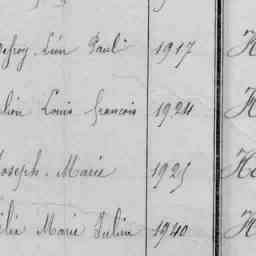 Léon Paul 1917 H
Louis François 1924 H
Joseph Marie 1925 He
Marie Julien 1940 H